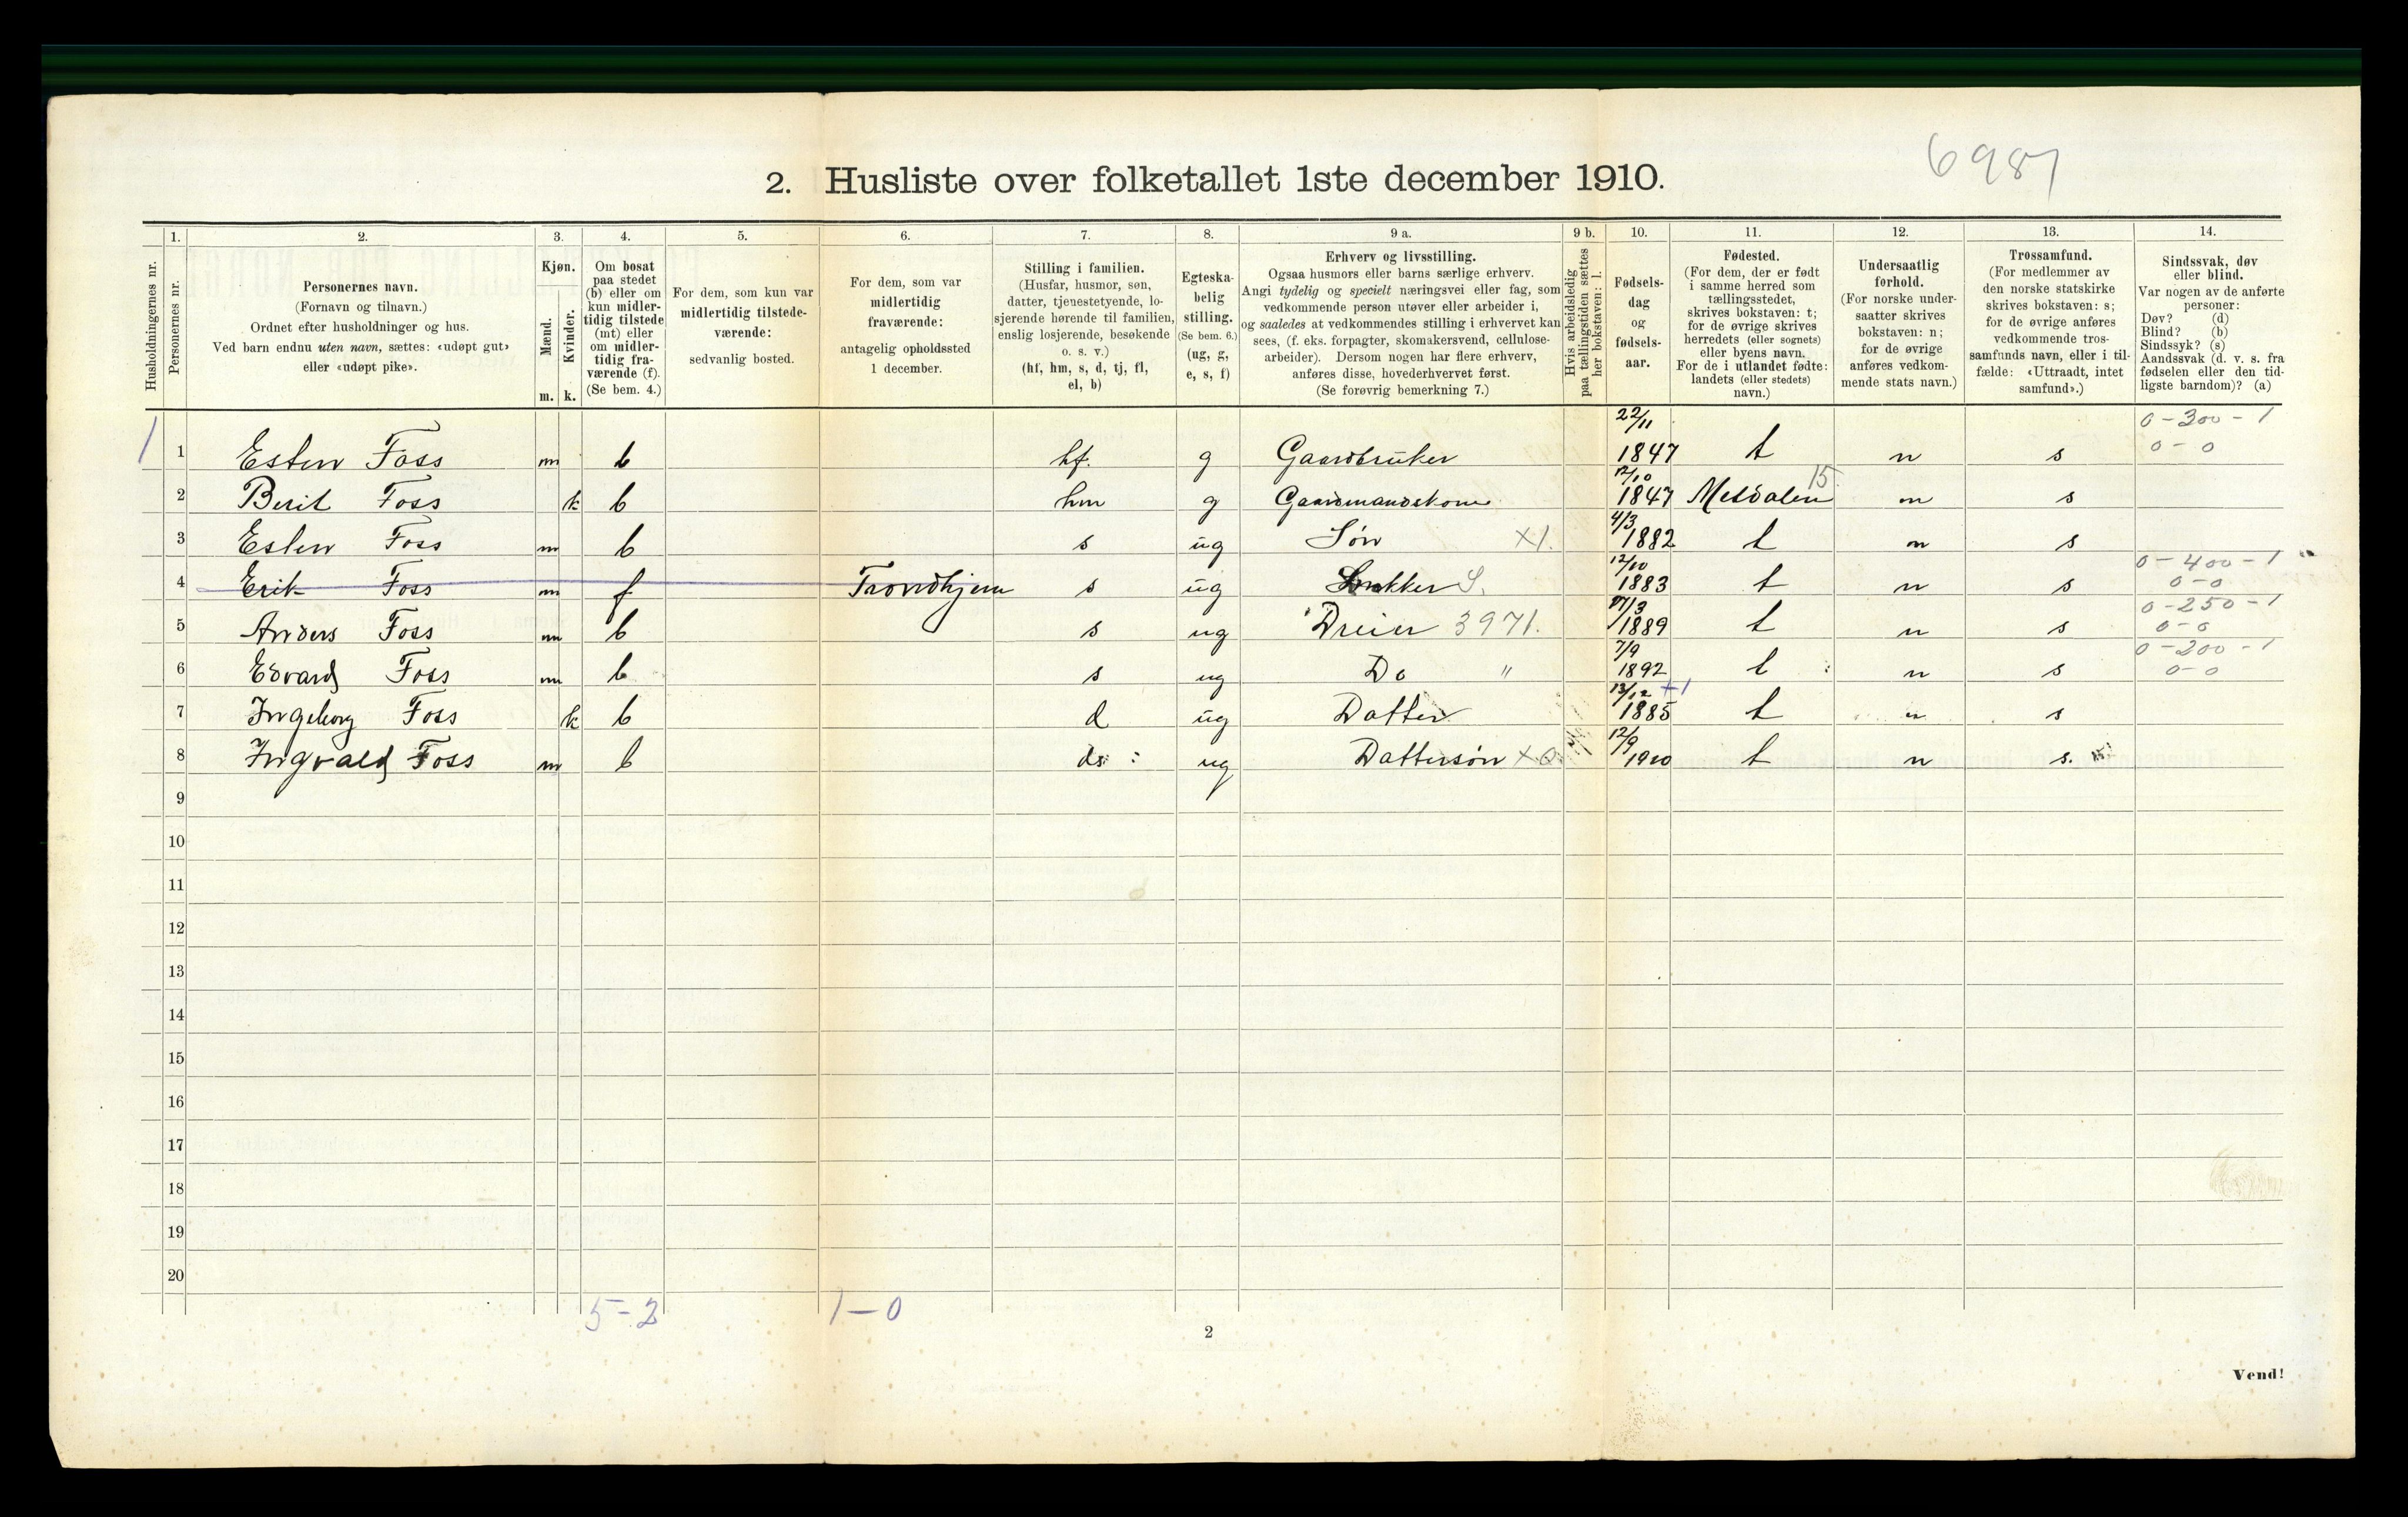 6987
2. Husliste over folketallet 1ste december 1910.
Husholdningernes nr.
1.
Personernes nr.
2.
Personernes navn.
(Fornavn og tilnavn.)
Ordnet efter husholdninger og hus.
Ved barn endnu uten navn, sættes: «udøpt gut»
eller «udøpt pike».
3.
Kjøn.
Mænd.
Kvinder.
m. k.
4.
Om bosat
paa stedet
(b) eller om
kun midler-
tidig tilstede
(mt) eller
om midler-
tidig fra-
værende (f).
(Se bem. 4.)
5.
For dem, som kun var
midlertidig tilstede-
værende:
sedvanlig bosted.
6.
For dem, som var
midlertidig
fraværende:
antagelig opholdssted
1 december.
7.
Stilling i familien.
(Husfar, husmor, søn,
datter, tjenestetyende, lo-
sjerende hørende til familien,
enslig losjerende, besøkende
o. s. v.)
(hf, hm, s, d, tj, fl,
el, b)
8.
Egteska-
belig
stilling.
(Se bem. 6.)
(ug, g,
e, s, f)
9 a.
Erhverv og livsstilling.
Ogsaa husmors eller barns særlige erhverv.
Angi tydelig og specielt næringsvei eller fag, som
vedkommende person utøver eller arbeider i,
og saaledes at vedkommendes stilling i erhvervet kan
sees, (f. eks. forpagter, skomakersvend, cellulose-
arbeider). Dersom nogen har flere erhverv,
anføres disse, hovederhvervet først.
(Se forøvrig bemerkning 7.)
9 b.
Hvis arbeidsledig
paa tællingstiden sættes
her bokstaven: l.
10.
Fødsels-
dag
og
fødsels-
aar.
11.
Fødested.
(For dem, der er født
i samme herred som
tællingsstedet,
skrives bokstaven: t;
for de øvrige skrives
herredets (eller sognets)
eller byens navn.
For de i utlandet fødte:
landets (eller stedets)
navn.)
12.
Undersaatlig
forhold.
(For norske under-
saatter skrives
bokstaven: n;
for de øvrige
anføres vedkom-
mende stats navn.)
13.
Trossamfund.
(For medlemmer av
den norske statskirke
skrives bokstaven: s;
for de øvrige anføres
vedkommende tros-
samfunds navn, eller i til-
fælde: «Uttraadt, intet
samfund».)
14.
Sindssvak, døv
eller blind.
Var nogen av de anførte
personer:
Døv? (d)
Blind? (b)
Sindssyk? (s)
Aandssvak (d. v. s. fra
fødselen eller den tid-
ligste barndom)? (a)
1 1 Esten Foss m b hf. g Gaardbruker 22/11 1847 t n s 0-300-1 0-0
2 Berit Foss k b hm g Gaardmandskone 12/10 1847 Meldalen 15 n s
3 Esten Foss m b s ug Søn X1. 4/3 1882 t n s
4 Erik Foss m f Trondhjem s ug S. 12/10 1883 t n s 0-400-1 0-0
5 Anders Foss m b s ug Dreier 3971. 17/3 1889 t n s 0-250-1 0-0
6 Edvard Foss m b s ug Do " 7/9 1892 t n s 0-200-1 0-0
7 Ingeborg Foss k b d ug Datter 13/12 +1 1885 t n s
8 Ingvald Foss m b ds: ug Dattersøn X0 12/9 1910 t n s. 15.
9
10
11
12
13
14
15
16
17
18
19
20
5-2 1-0
2
Vend!